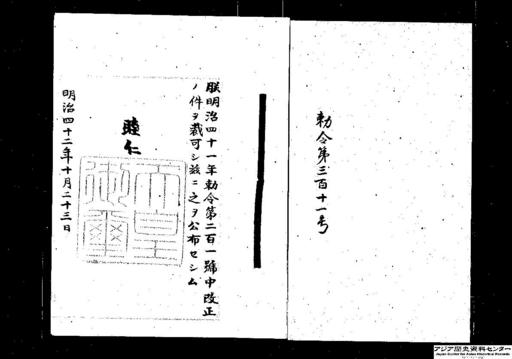 勅令第三百十一号
朕明治四十一年勅令第二百一號中改正
ノ件ヲ裁可シ茲ニ之ヲ公布セシム
睦仁
天皇御璽
明治四十二年十月二十三日
アジア歴史資料センター
Japan Center for Asian Historical Records